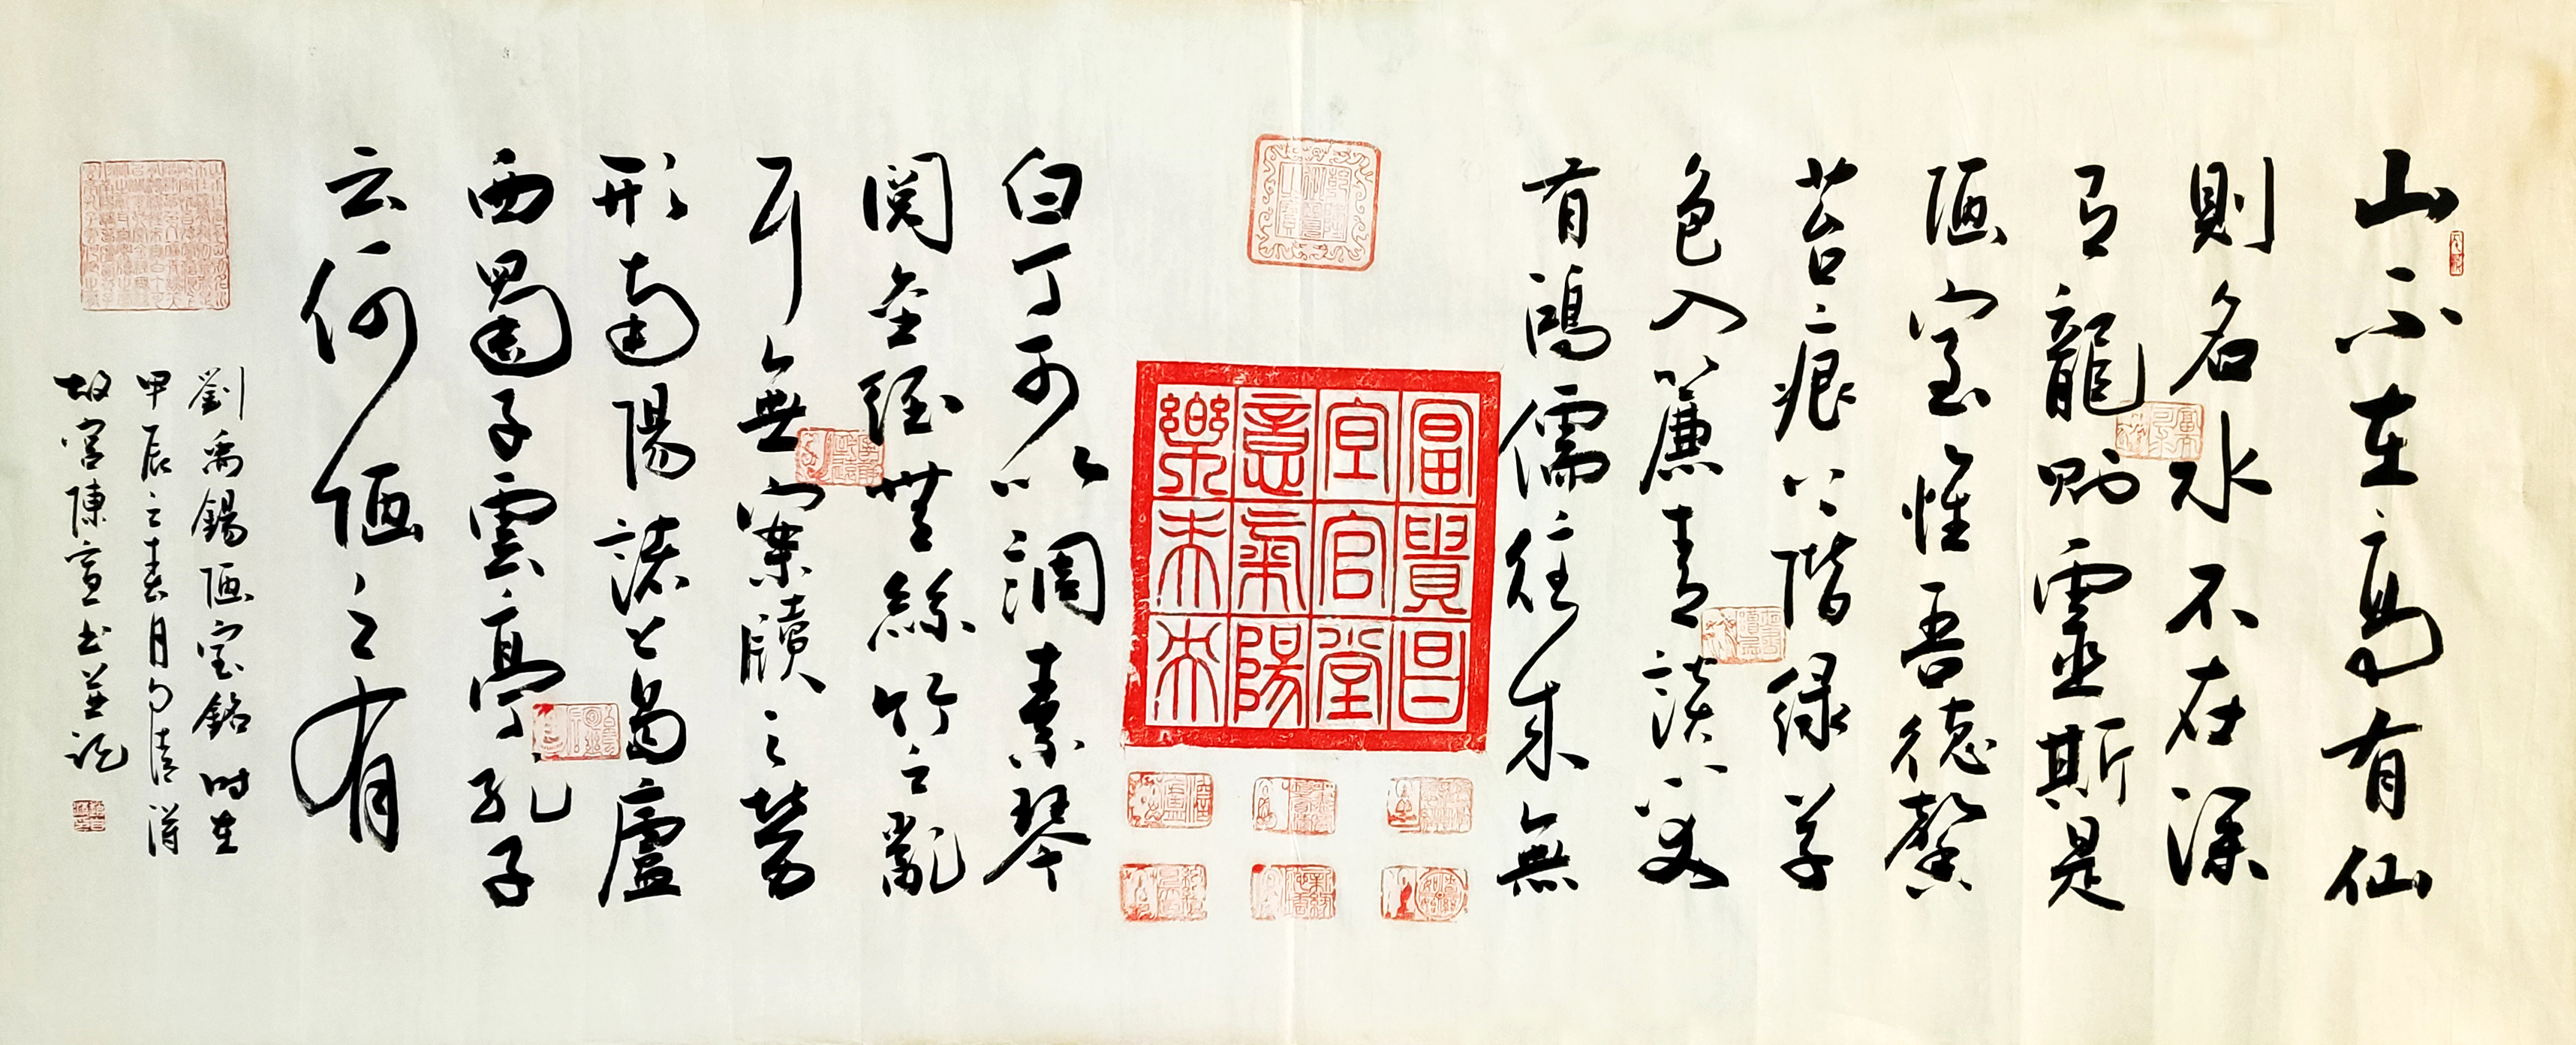 山不在高有仙
則名水不在深
有龍則靈斯是
陋室惟吾德馨
苔痕上階綠草
色入簾青談笑
有鴻儒往來無
富貴昌
宜官堂
意氣陽
樂未央
白丁可以調素琴
閱金經無絲竹之亂
耳無案牘之勞
形南陽諸葛廬
西蜀子雲亭孔子
云何陋之有
劉禹錫陋室銘時在
甲辰之春月
故宮陳宣书並記